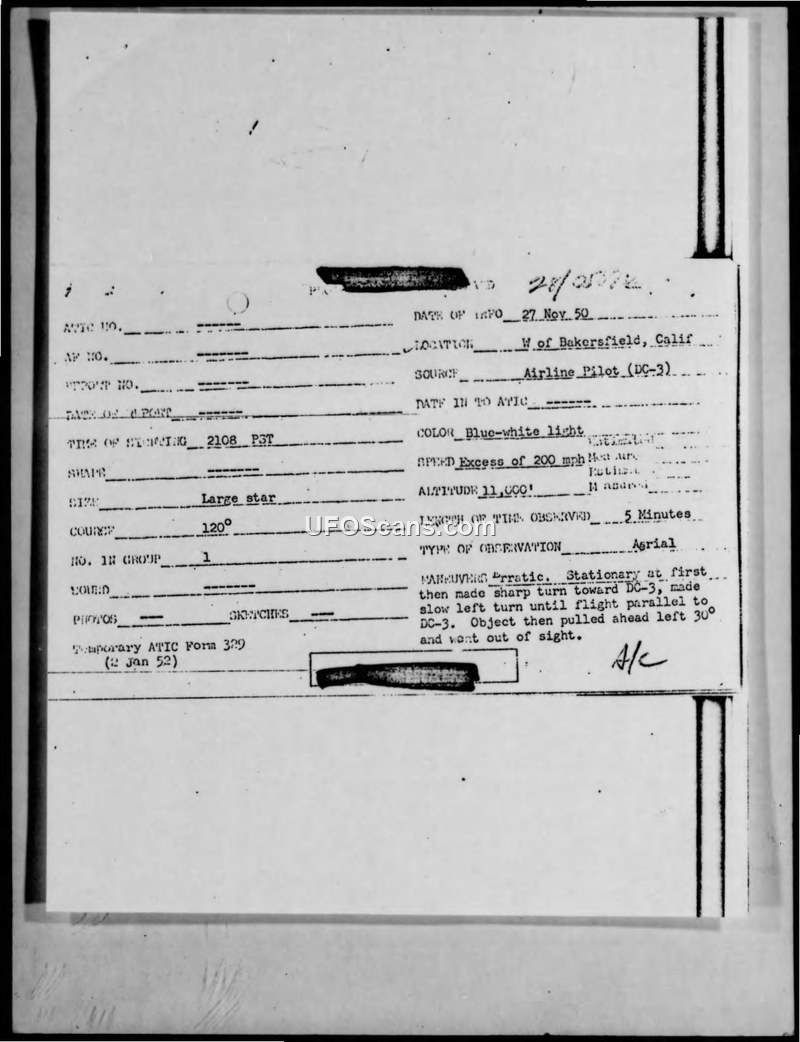 ATIC NO. ------
DATE OF INFO 27 Nov 50
AF NO. ------
LOCATION W of Bakersfield, Calif
REPORT NO. ------
SOURCE Airline Pilot (DC-3)
DATE OF REPORT ------
DATE IN TO ATIC ------
TIME OF SIGHTING 2108 PST
COLOR Blue-white light
SHAPE -------
SPEED Excess of 200 mph
SIZE Large star
ALTITUDE 11,000'
COURSE 120°
LENGTH OF TIME OBSERVED 5 Minutes
UFOScans.com
NO. IN GROUP 1
TYPE OF OBSERVATION Aerial
SOUND -------
MANEUVERS Erratic. Stationary at first
then made sharp turn toward DC-3, made
slow left turn until flight parallel to
DC-3. Object then pulled ahead left 30°
and went out of sight.
PHOTOS --- SKETCHES ---
Temporary ATIC Form 329
(2 Jan 52)
A/c